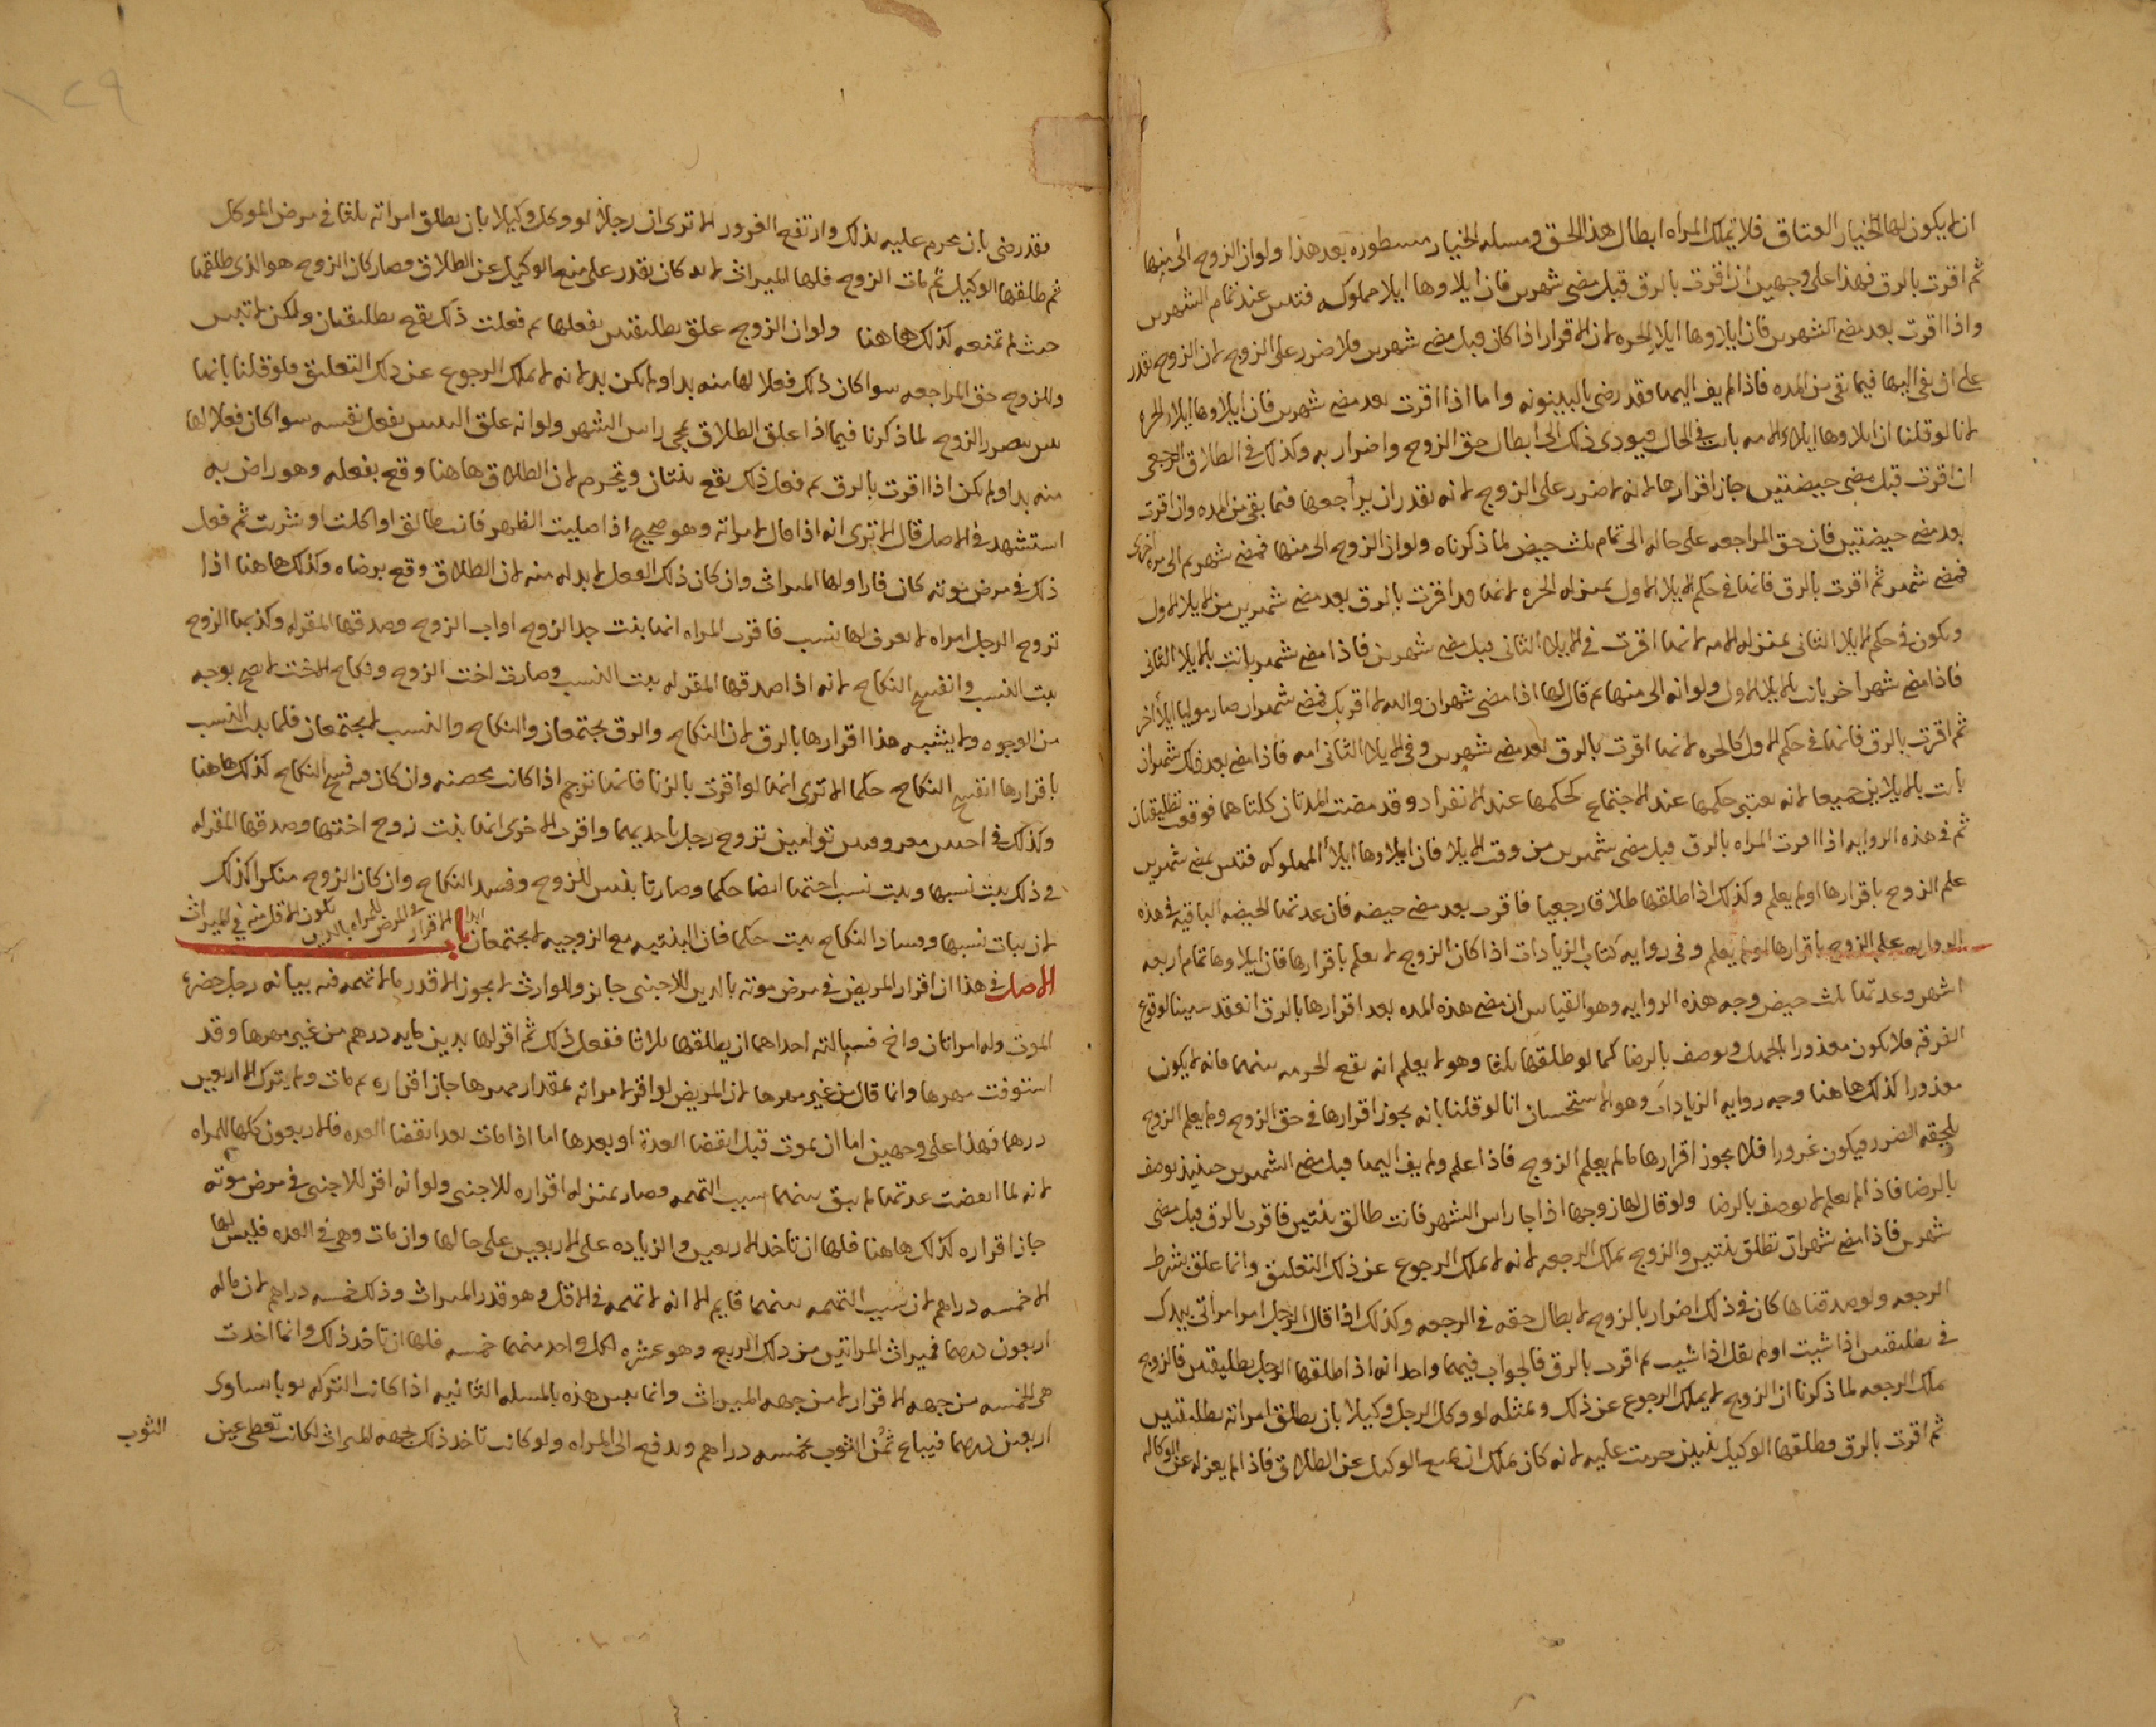 ان لا يكون لها الخيار العتاق فلا تملك المراه ابطال هذا الحق ومسله الخيار مسطوره بعد هذا ولو ان الزوج الى منها
ثم اقرت بالرق فهذا على وجهين ان اقرت بالرق قبل مضى شهرين فان ايلاوها ايلا مملوكه فتبين عند تمام الشهرين
واذا اقرت بعد مضى الشهرين فان ايلاوها ايلا الحره لان الاقرار اذا كان قبل مضى شهرين فلا ضرر على الزوج لان الزوج يقدر
على ان يفى اليها فيما بقى من المده فاذا لم يف اليها فقد رضى بالبينونه واما اذا اقرت بعد مضى شهرين فان ايلاوها ايلا الحره
لانا لو قلنا ان ايلاوها ايلاء الامه بانت فى الحال فيودى ذلك الى ابطال حق الزوج واضرار به وكذلك فى الطلاق الرجعى
ان اقرت قبل مضى حيضتين جاز اقرارها لانه لا ضرر على الزوج لانه يقدر ان يراجعها فيما بقى من المده وان اقرت
بعد مضى حيضتين فان حق المراجعه على حاله الى تمام ثلث حيض لما ذكرناه ولو ان الزوج الى منها فمضى شهر ثم الى مره اخرى
فمضى شهر ثم اقرت بالرق فانها فى حكم الايلا الاول بمنزله الحره لانها قد اقرت بالرق بعد مضى شهرين من الايلا الاول
ويكون فى حكم الايلا الثانى بمنزله الامه لانها اقرت فى الايلا الثانى قبل مضى شهرين فاذا مضى شهر بانت بالايلا الثانى
فاذا مضى شهر اخر بانت بالايلا الاول ولو انه الى منها ثم قال لها اذا مضى شهران والله لا اقربك فمضى شهران صار موليا ايلا اخر
ثم اقرت بالرق فانها فى حكم الاول كالحره لانها اقرت بالرق بعد مضى شهرين وفى الايلا الثانى امه فاذا مضى بعد ذلك شهران
بانت بالايلاين جميعا لانه يعتبر حكمها عند الاجتماع كحكمها عند الانفراد وقد مضت المدتان كلتاهما فوقعت تطليقتان
ثم فى هذه الروايه اذا اقرت المراه بالرق قبل مضى شهرين من وقت الايلا فان ايلاوها ايلا المملوكه فتبين بمضى شهرين
علم الزوج باقرارها او لم يعلم وكذلك اذا طلقها طلاقا رجعيا فاقرت بعد مضى حيضه فان عدتها الحيضه الباقيه فى هذه
الروايه علم الزوج باقرارها او لم يعلم وفى روايه كتاب الزيادات اذا كان الزوج لا يعلم باقرارها فان ايلاوها تمام اربعه
اشهر وعدتها ثلث حيض وجه هذه الروايه وهو القياس ان مضى هذه المده بعد اقرارها بالرق انعقد سببا لوقوع
الفرقه فلا يكون معذورا بالجهل ويوصف بالرضا كما لو طلقها ثلثا وهو لا يعلم انه يقع الحرمه بينهما فانه لا يكون
معذورا كذلك هاهنا وجه روايه الزيادات وهو الاستحسان انا لو قلنا بانه يجوز اقرارها فى حق الزوج ولم يعلم الزوج
يلحقه الضرر ويكون غرورا فلا يجوز اقرارها ما لم يعلم الزوج فاذا علم ولم يف اليها قبل مضى الشهرين حينيذ يوصف
بالرضا فاذا لم يعلم لا يوصف بالرضا ولو قال لها زوجها اذا جا راس الشهر فانت طالق ثنتين فاقرت بالرق قبل مضى
شهرين فاذا مضى شهران تطلق ثنتين والزوج يملك الرجعه لانه لا يملك الرجوع عن ذلك التعليق وانما علق بشرط
الرجعه ولو صدقناها كان فى ذلك اضرار بالزوج لابطال حقه فى الرجعه وكذلك اذا قال الرجل امر امراتى بيدك
فى تطليقتين اذا شيت او لم يقل اذا شيت ثم اقرت بالرق فالجواب فيهما واحد انه اذا طلقها الرجل تطليقتين فالزوج
يملك الرجعه لما ذكرنا ان الزوج لا يملك الرجوع عن ذلك وبمثله لو وكل الرجل وكيلا بان يطلق امراته تطليقتين
ثم اقرت بالرق وطلقها الوكيل ثنتين حرمت عليه لانه كان يملك ان يمنع الوكيل عن الطلاق فاذا لم يعزله عن الوكاله
فقد رضى بان يحرم عليه بذلك وارتفع الغرور الا ترى ان رجلا لو وكل وكيلا بان يطلق امراته ثلثا فى مرض الموكل
ثم طلقها الوكيل ثم مات الزوج فلها الميراث لانه كان يقدر على منع الوكيل عن الطلاق فصار كان الزوج هو الذى طلقها
حيث لم تمنعه كذلك هاهنا ولو ان الزوج علق تطليقتين بفعلها ثم فعلت ذلك يقع تطليقتان ولكن لا تبين
وللزوج حق المراجعه سوا كان ذلك فعلا لها منه بد او لم يكن بد لانه لا يملك الرجوع عن ذلك التعليق فلو قلنا بانها
تبين يتضرر الزوج لما ذكرنا فيما اذا علق الطلاق بمجى راس الشهر ولو انه علق الثنتين بفعل نفسه سوا كان فعلا لها
منه بد او لم يكن اذا اقرت بالرق ثم فعل ذلك يقع ثنتان ويحرم لان الطلاق هاهنا وقع بفعله وهو راض به
استشهد فى الاصل قال الا ترى انه اذا قال لامراته وهو صحيح اذا صليت الظهر فانت طالق او اكلت او شربت ثم فعل
ذلك فى مرض موته كان فارا ولها الميراث وان كان ذلك الفعل لا بد له منه لان الطلاق وقع برضاه وكذلك هاهنا اذا
تزوج الرجل امراه لا يعرف لها نسب فاقرت المراه انها بنت جد الزوج او اب الزوج وصدقها المقر له وكذبها الزوج
يثبت النسب وانفسخ النكاح لانه اذا صدقها المقر له يثبت النسب وصارت اخت الزوج ونكاح الاخت لا يصح بوجه
من الوجوه ولا يشبه هذا اقرارها بالرق لان النكاح والرق يجتمعان والنكاح والنسب لا يجتمعان فلما ثبت النسب
باقرارها انفسخ النكاح حكما الا ترى انها لو اقرت بالزنا فانها ترجم اذا كانت محصنه وان كان فيه فسخ النكاح كذلك هاهنا
وكذلك فى اختين معروفتين توامين تزوج رجل باحديهما واقرت الاخرى انها بنت زوج اختها وصدقها المقر له
فى ذلك يثبت نسبها ويثبت نسب اختها ايضا حكما وصارتا بنتين للزوج وفسد النكاح وان كان الزوج منكرا كذلك
لان ثبات نسبها وفساد النكاح يثبت حكما فان البنتيه مع الزوجيه لا يجتمعان باب الاقرار فى المرض للمراه بالدين يكون الاقل منه فى الميراث
الاصل فى هذا ان اقرار المريض فى مرض موته بالدين للاجنبى جايز وللوارث لا يجوز الا قدر ما لا تهمه فيه بيانه رجل حضره
الموت وله امراتان واخ فسالته احداهما ان يطلقها ثلاثا ففعل ذلك ثم اقر لها بدين مايه درهم من غير مهرها وقد
استوفت مهرها وانما قال من غير مهرها لان المريض لو اقر لامراته بمقدار مهرها جاز اقراره ثم مات ولم يترك الا اربعين
درهما فهذا على وجهين اما ان يموت قبل انقضا العدة او بعدها اما اذا مات بعد انقضا العده فالاربعون كلها للمراه
لانه لما انقضت عدتها لم يبق بينهما سبب التهمه وصار بمنزله اقراره للاجنبى ولو انه اقر للاجنبى فى مرض موته
جاز اقراره كذلك هاهنا فلها ان تاخذ الاربعين والزياده على الاربعين على حالها وان مات وهى فى العده فليس لها
الا خمسه دراهم لان سبب التهمه بينهما قايم الا انه لا تهمه فى الاقل وهو قدر الميراث وذلك خمسه دراهم لان ماله
اربعون درهما فميراث المراتين من ذلك الربع وهو عشره لكل واحد منهما خمسه فلها ان تاخذ ذلك وانما اخذت
هى الخمسه من جهه الاقرار لا من جهه الميراث وانما يبين هذه بالمسله الثانيه اذا كانت التركه ثوبا يساوى
اربعين درهما فيباع ثمن الثوب بخمسه دراهم ويدفع الى المراه ولو كانت تاخذ ذلك بجهه الميراث لكانت تعطى عين
الثوب